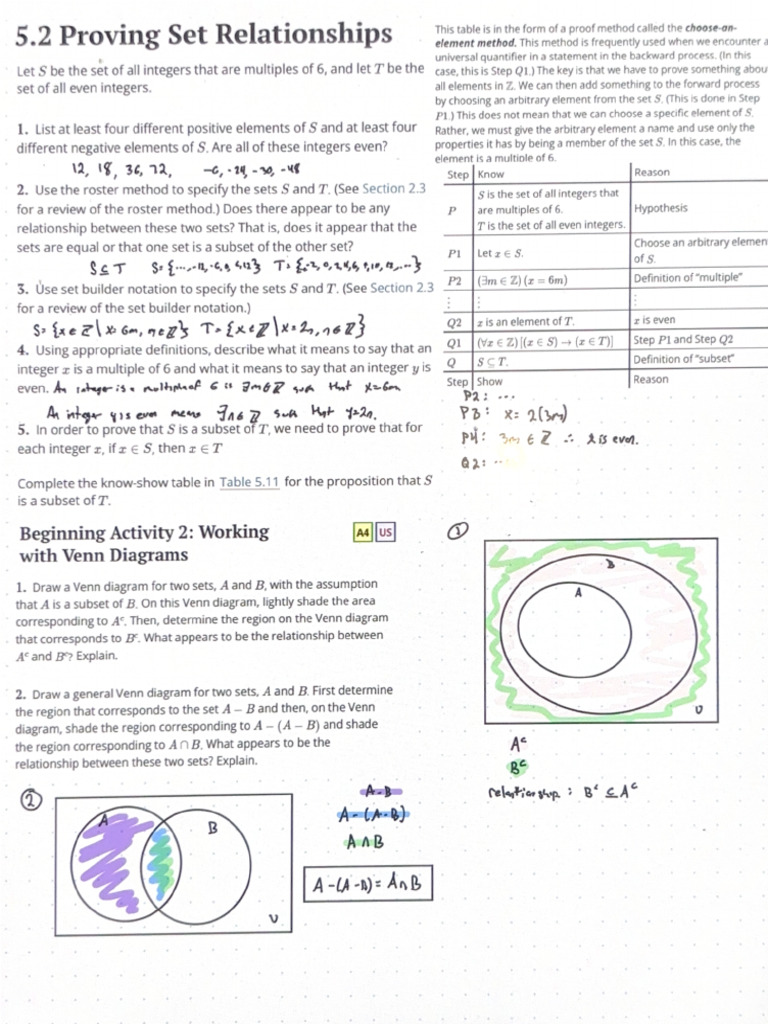 5.2 Proving Set Relationships
Let S be the set of all integers that are multiples of 6, and let T be the
set of all even integers.
1. List at least four different positive elements of S and at least four
different negative elements of S. Are all of these integers even?
12, 18, 36, 72, -6, -24, -30, -48
2. Use the roster method to specify the sets S and T. (See Section 2.3
for a review of the roster method.) Does there appear to be any
relationship between these two sets? That is, does it appear that the
sets are equal or that one set is a subset of the other set?
S ⊆ T S = {..., -12, -6, 0, 6, 12} T = {..-2, 0, 2, 4, 6, 8, 10, 12, ...}
3. Use set builder notation to specify the sets S and T. (See Section 2.3
for a review of the set builder notation.)
S = {x ∈ Z | x = 6m, m ∈ Z} T = {x ∈ Z | x = 2n, n ∈ Z}
4. Using appropriate definitions, describe what it means to say that an
integer x is a multiple of 6 and what it means to say that an integer y is
even. An integer is a multiple of 6 is ∃m ∈ Z such that x = 6m
An integer y is even means ∃n ∈ Z such that y = 2n.
5. In order to prove that S is a subset of T, we need to prove that for
each integer x, if x ∈ S, then x ∈ T
Complete the know-show table in Table 5.11 for the proposition that S
is a subset of T.
This table is in the form of a proof method called the choose-an-
element method. This method is frequently used when we encounter a
universal quantifier in a statement in the backward process. (In this
case, this is Step Q1.) The key is that we have to prove something abou
all elements in Z. We can then add something to the forward process
by choosing an arbitrary element from the set S. (This is done in Step
P1.) This does not mean that we can choose a specific element of S.
Rather, we must give the arbitrary element a name and use only the
properties it has by being a member of the set S. In this case, the
element is a multiple of 6.
Step Know Reason
S is the set of all integers that
P are multiples of 6. Hypothesis
T is the set of all even integers.
Choose an arbitrary elemen
P1 Let x ∈ S. of S.
P2 (∃m ∈ Z) (x = 6m) Definition of "multiple"
⋮ ⋮ ⋮
Q2 x is an element of T. x is even
Q1 (∀x ∈ Z) [(x ∈ S) → (x ∈ T)] Step P1 and Step Q2
Q S ⊆ T. Definition of "subset"
Step Show Reason
P2: ...
P3: x = 2(3m)
P4: 3m ∈ Z ∴ x is even.
Q2: ..
Beginning Activity 2: Working
with Venn Diagrams
A4 US
1. Draw a Venn diagram for two sets, A and B, with the assumption
that A is a subset of B. On this Venn diagram, lightly shade the area
corresponding to Aᶜ. Then, determine the region on the Venn diagram
that corresponds to Bᶜ. What appears to be the relationship between
Aᶜ and Bᶜ? Explain.
2. Draw a general Venn diagram for two sets, A and B. First determine
the region that corresponds to the set A − B and then, on the Venn
diagram, shade the region corresponding to A − (A − B) and shade
the region corresponding to A ∩ B. What appears to be the
relationship between these two sets? Explain.
①
B
A
U
Aᶜ
Bᶜ
relationship: Bᶜ ⊆ Aᶜ
②
A
B
U
A-B
A-(A-B)
A ∩ B
A-(A-B) = A ∩ B